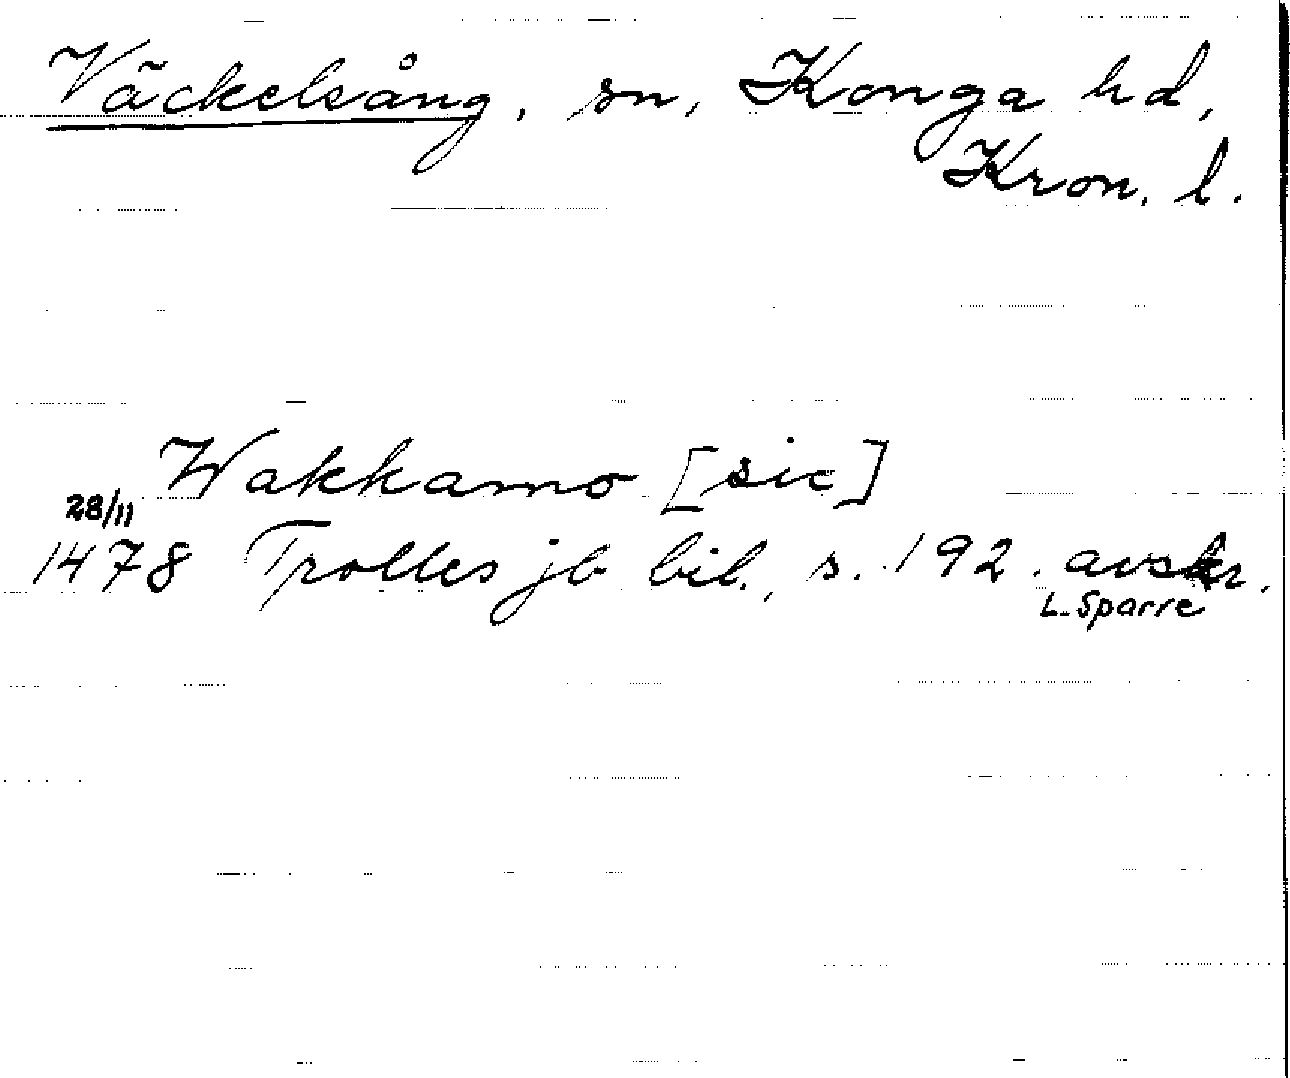 Väckelsång, sn, Konga hd,
Kron. l.
Wakkamo [sic]
28/11
1478 Trolles jb bil., s. 192. avskr.
L. Sparre